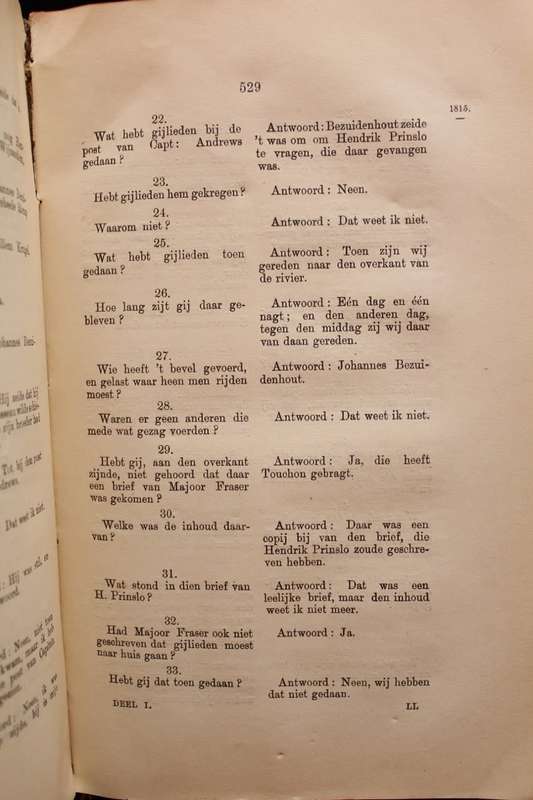 529
1815.
22.
Wat hebt gijlieden bij de
post van Capt: Andrews
gedaan ?
Antwoord : Bezuidenhout zeide
't was om om Hendrik Prinslo
te vragen, die daar gevangen
was.
23.
Hebt gijlieden hem gekregen ?
Antwoord : Neen.
24.
Waarom niet ?
Antwoord : Dat weet ik niet.
25.
Wat hebt gijlieden toen
gedaan ?
Antwoord : Toen zijn wij
gereden naar den overkant van
de rivier.
26.
Hoe lang zijt gij daar ge-
bleven ?
Antwoord : Eén dag en één
nagt ; en den anderen dag,
tegen den middag zij wij daar
van daan gereden.
27.
Wie heeft 't bevel gevoerd,
en gelast waar heen men rijden
moest ?
Antwoord : Johannes Bezui-
denhout.
28.
Waren er geen anderen die
mede wat gezag voerden ?
Antwoord : Dat weet ik niet.
29.
Hebt gij, aan den overkant
zijnde, niet gehoord dat daar
een brief van Majoor Fraser
was gekomen ?
Antwoord : Ja, die heeft
Touchon gebragt.
30.
Welke was de inhoud daar-
van ?
Antwoord : Daar was een
copij bij van den brief, die
Hendrik Prinslo zoude geschre-
ven hebben.
31.
Wat stond in dien brief van
H. Prinslo ?
Antwoord : Dat was een
leelijke brief, maar den inhoud
weet ik niet meer.
32.
Had Majoor Fraser ook niet
geschreven dat gijlieden moest
naar huis gaan ?
Antwoord : Ja.
33.
Hebt gij dat toen gedaan ?
Antwoord : Neen, wij hebben
dat niet gedaan.
DEEL I.
LL